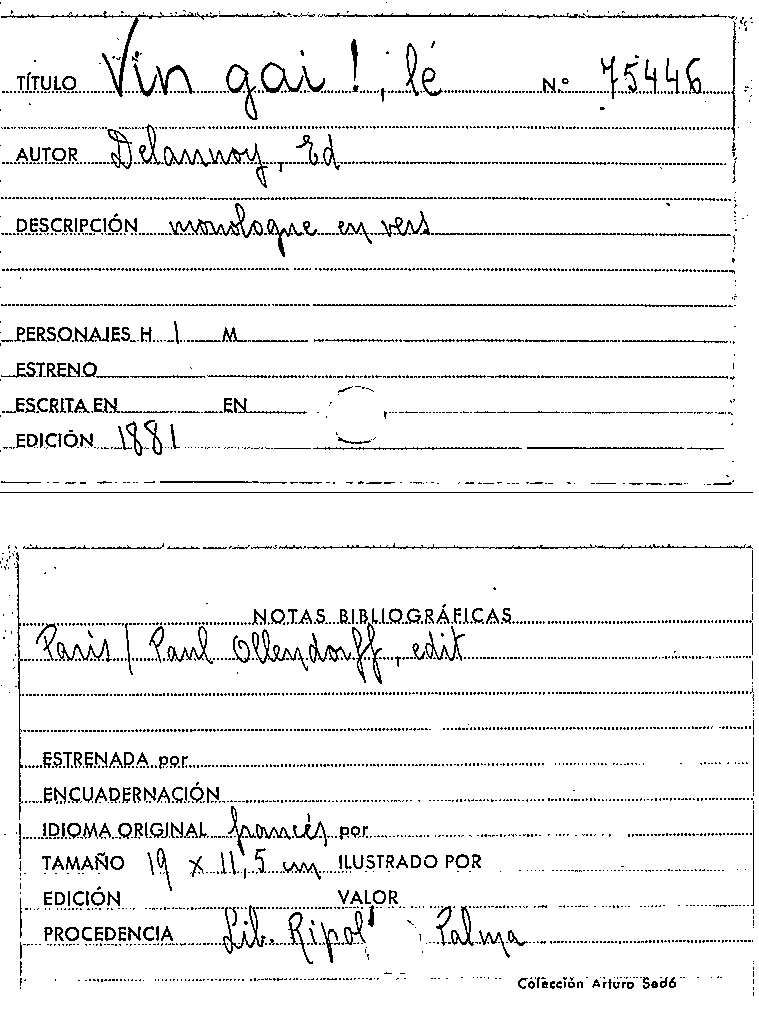 TÍTULO Vin gai!, lé N.º 75446
AUTOR Delannoy, Ed
DESCRIPCIÓN monologue en vers
PERSONAJES H 1 M
ESTRENO
ESCRITA EN EN
EDICIÓN 1881
NOTAS BIBLIOGRÁFICAS
Paris / Paul Ollendorff, edit
ESTRENADA por
ENCUADERNACIÓN
IDIOMA ORIGINAL francés por
TAMAÑO 19 x 11,5 cm ILUSTRADO POR
EDICIÓN VALOR
PROCEDENCIA Lib. Ripol Palma
Colección Arturo Sedó